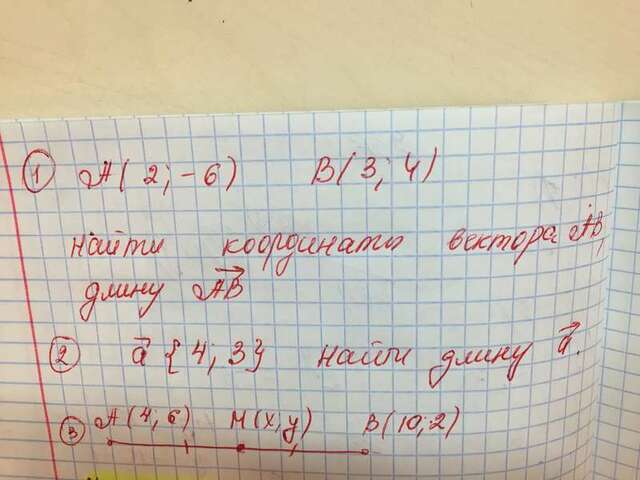 ① A(2; -6) B(3; 4)
найти координаты вектора AB,
длину A⃗B⃗
② a⃗ {4; 3} найти длину a⃗.
③ A(4; 6) M(x; y) B(10; 2)